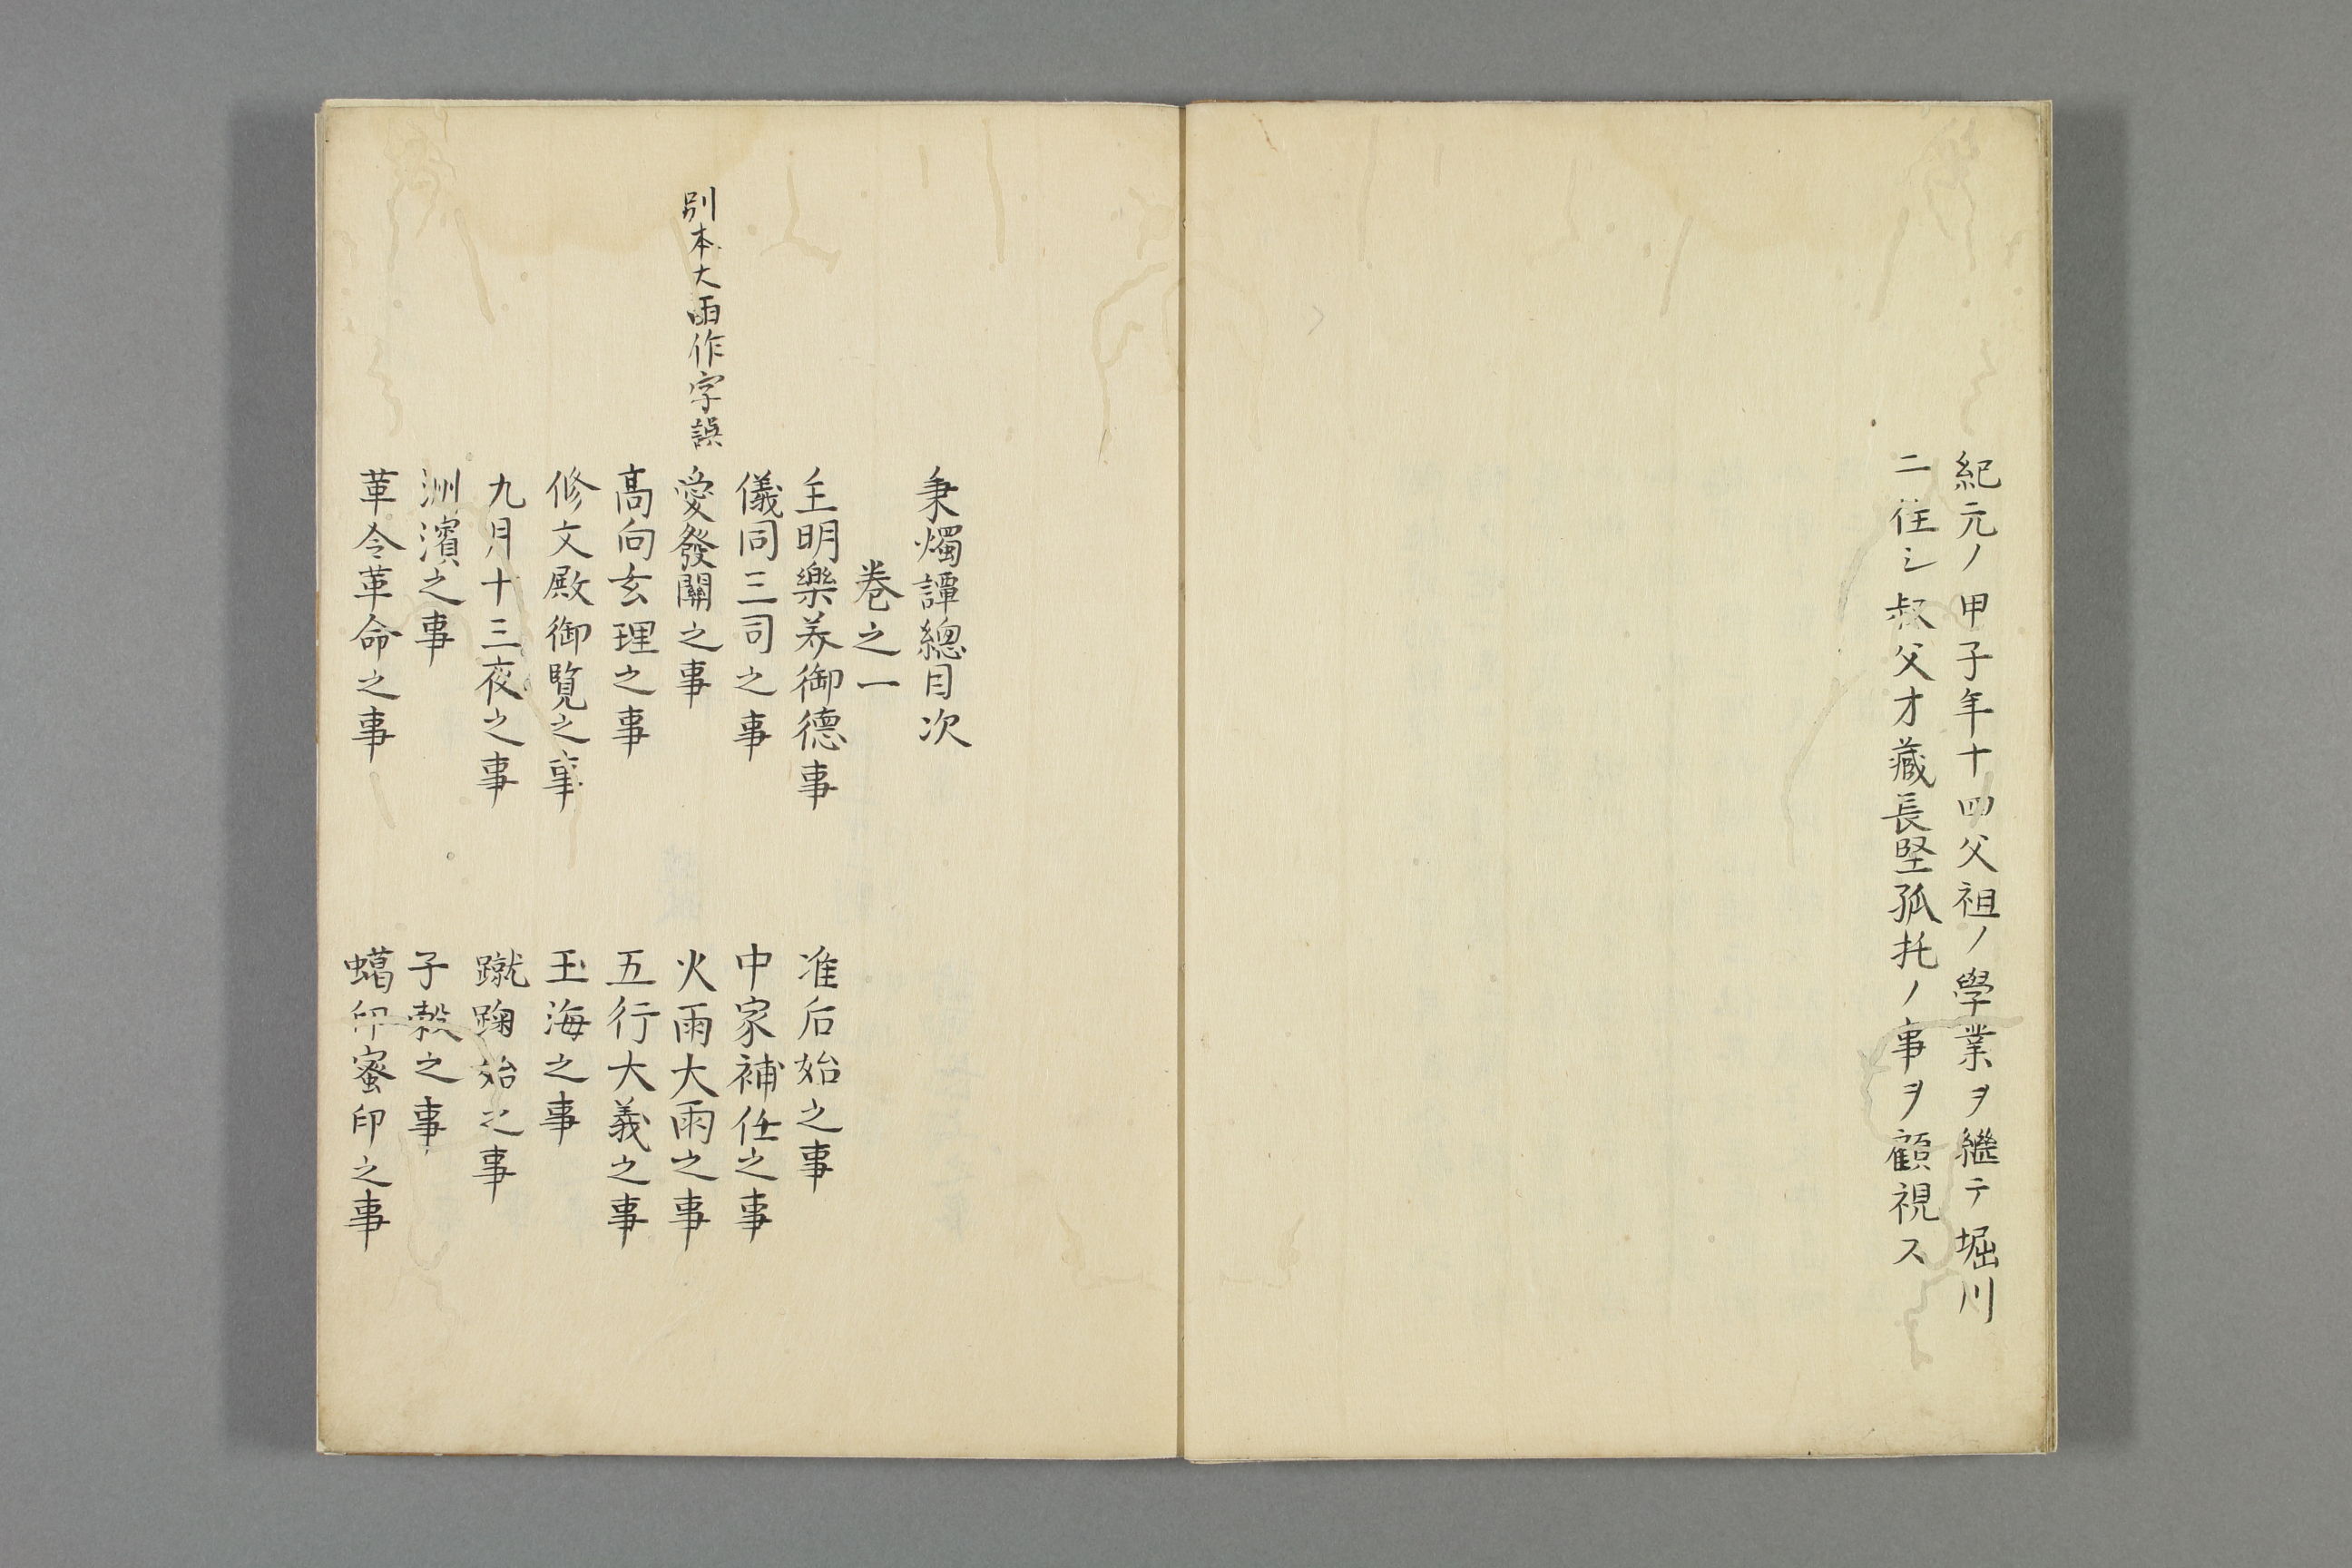 紀元ノ甲子年十四父祖ノ學業ヲ繼テ堀川
ニ住シ叔父才藏長堅孤托ノ事ヲ顧視ス
秉燭譚總目次
卷之一
主明樂美御德事
准后始之事
儀同三司之事
中家補任之事
別本大雨作字誤
愛發關之事
火雨大雨之事
髙向玄理之事
五行大義之事
修文殿御覽之事
玉海之事
九月十三夜之事
蹴踘始之事
洲濱之事
子穀之事
革令革命之事
蠟印蜜印之事